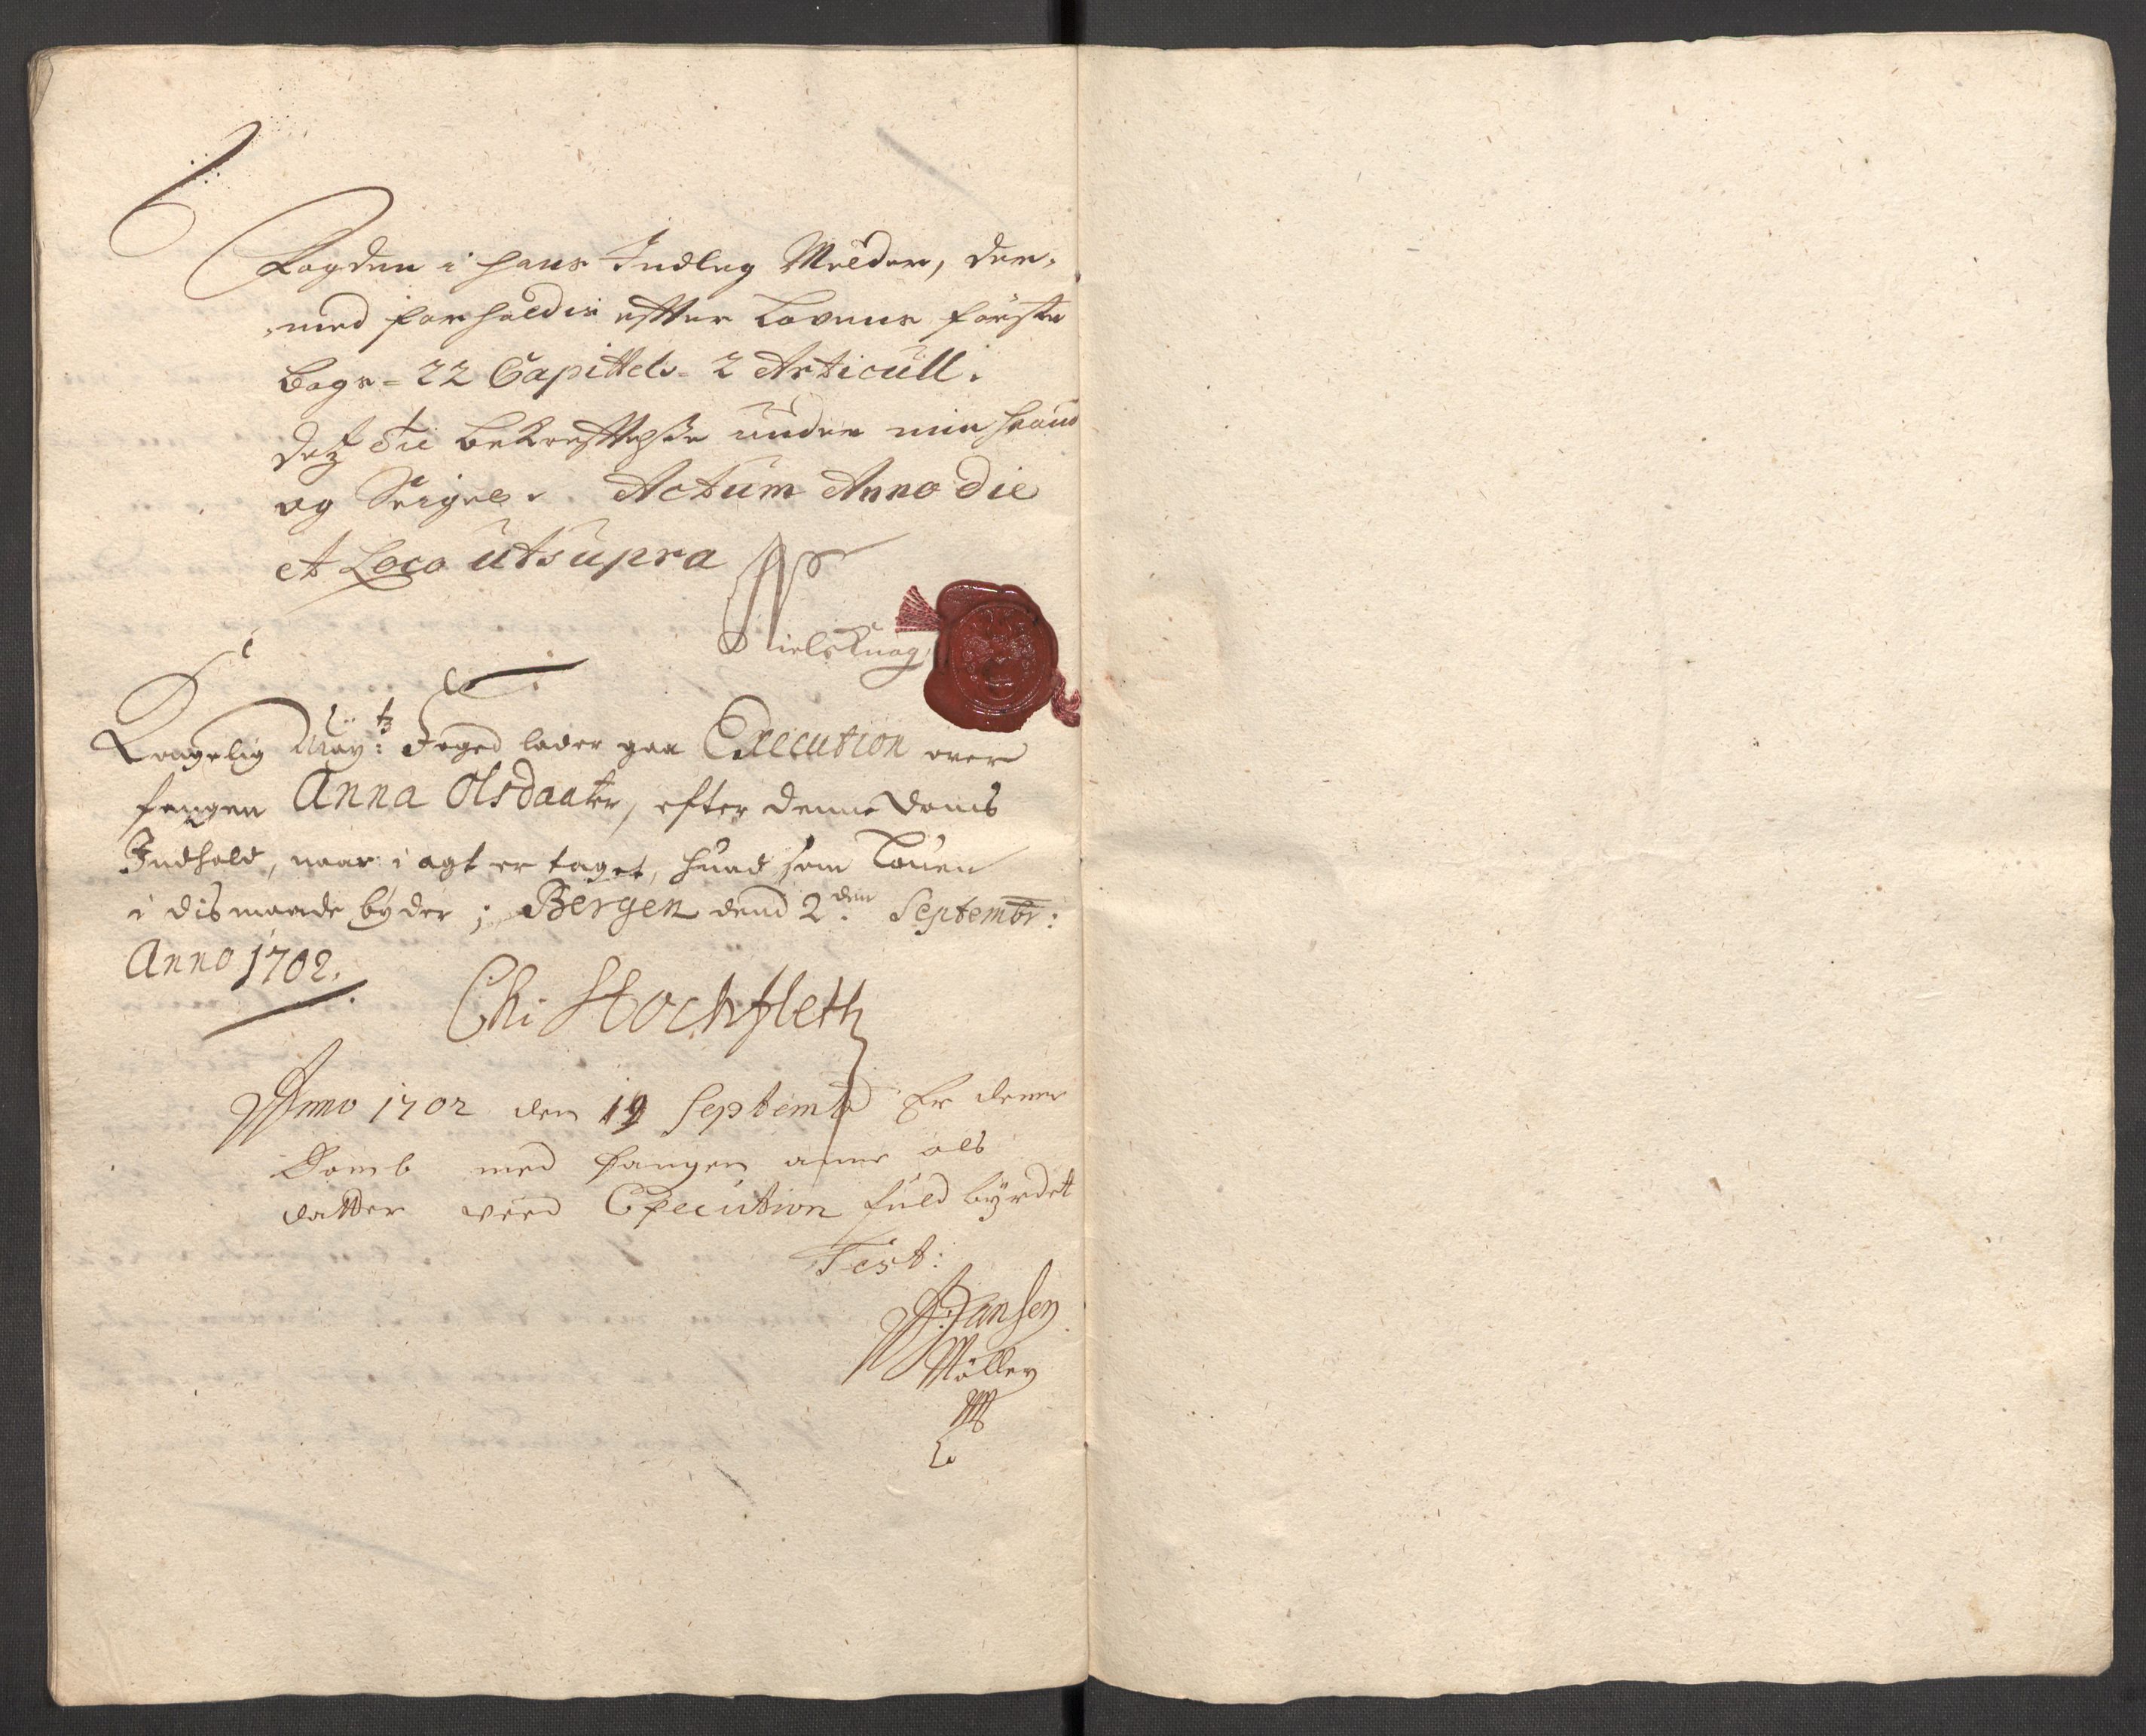 Fogden i hans Indleg Melder, der,
,med forholdis efter Lovens første
Bogs = 22 Capittels = 2 Articull.
Dez til bekreftelse under min Haand
og Seigel. Actum Anno die
et Loco utsupra
Niels Knag
Kongelig May:tz Foged lader gaa Execution over
fangen Anna Olsdaater, efter denne Doms
Indhold, naar i agt er taget, huad som Louen
i dis maade byder; Bergen dend 2den Septembr:
Anno 1702.
Chi Stockfleth
Anno 1702 den 19 Septemb Er denne
Domb med fangen anne ols
datter veed Execution fuld byrdet
Test:
Jansen
Møller